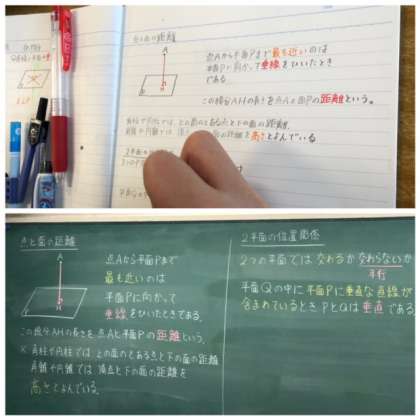 点と面の距離
A
H
P
点Aから平面Pまで最も近いのは
平面Pに向かって垂線をひいたとき
である。
この線分AHの長さを点Aと面Pの距離という。
角柱や円柱では、上の面のとある点と下の面の距離
角錐や円錐では 頂点
の距離を高さとよんでいる
点と面の距離
A
H
P
点Aから平面Pまで
最も近いのは
平面Pに向かって
垂線をひいたときである。
この線分AHの長さを点Aと平面Pの距離という。
※ 角柱や円柱では 上の面のとある点と下の面の距離
角錐や円錐では 頂点と下の面の距離を
高さとよんでいる。
2平面の位置関係
2つの平面では 交わるか 交わらないか
平行
平面Qの中に 平面Pに垂直な直線が
含まれているとき PとQは垂直である。